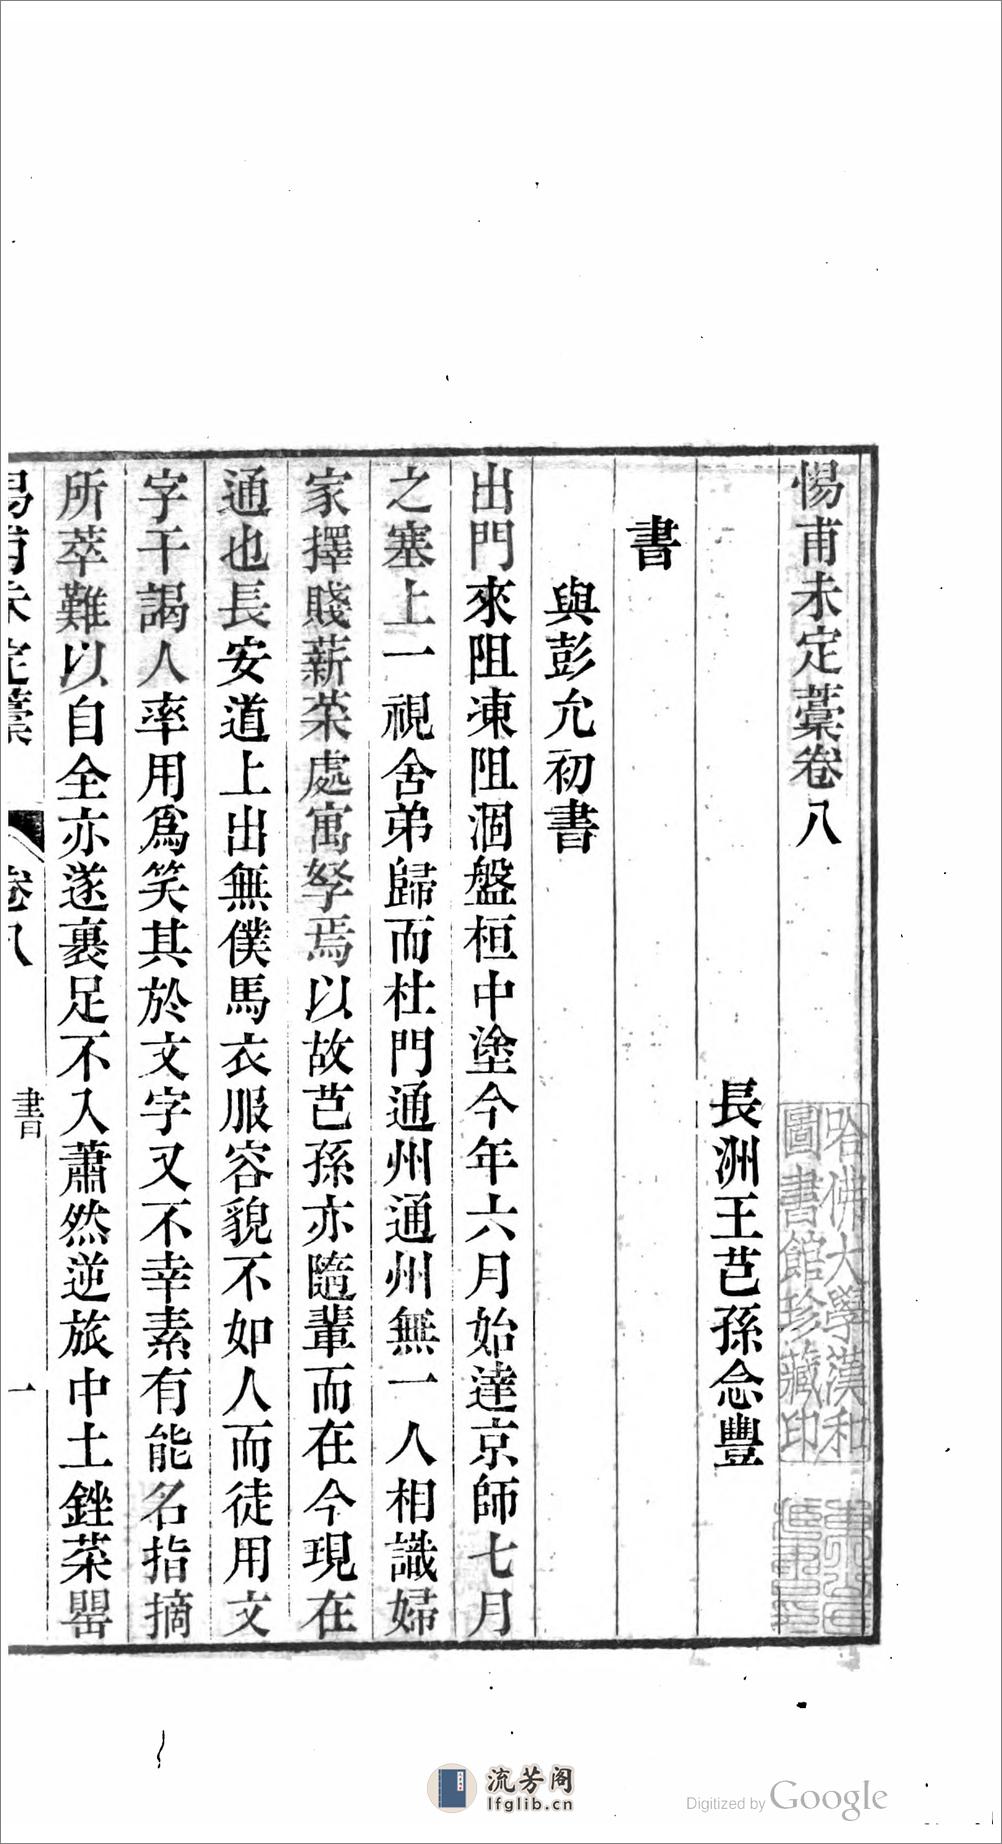 惕甫未定藳卷八
長洲王芑孫念豐
書
與彭允初書
出門來阻凍阻涸盤桓中塗今年六月始達京師七月
之塞上一視舍弟歸而杜門通州通州無一人相識婦
家擇賤薪菜處寓孥焉以故芑孫亦隨輩而在今現在
通也長安道上出無僕馬衣服容貌不如人而徒用文
字干謁人率用爲笑其於文字又不幸素有能名指摘
所萃難以自全亦遂裹足不入蕭然逆旅中土銼菜罌
惕甫未定藳
卷八
書
一
哈佛大學漢和
圖書館珍藏印
流芳阁
lfglib.cn
Digitized by Google